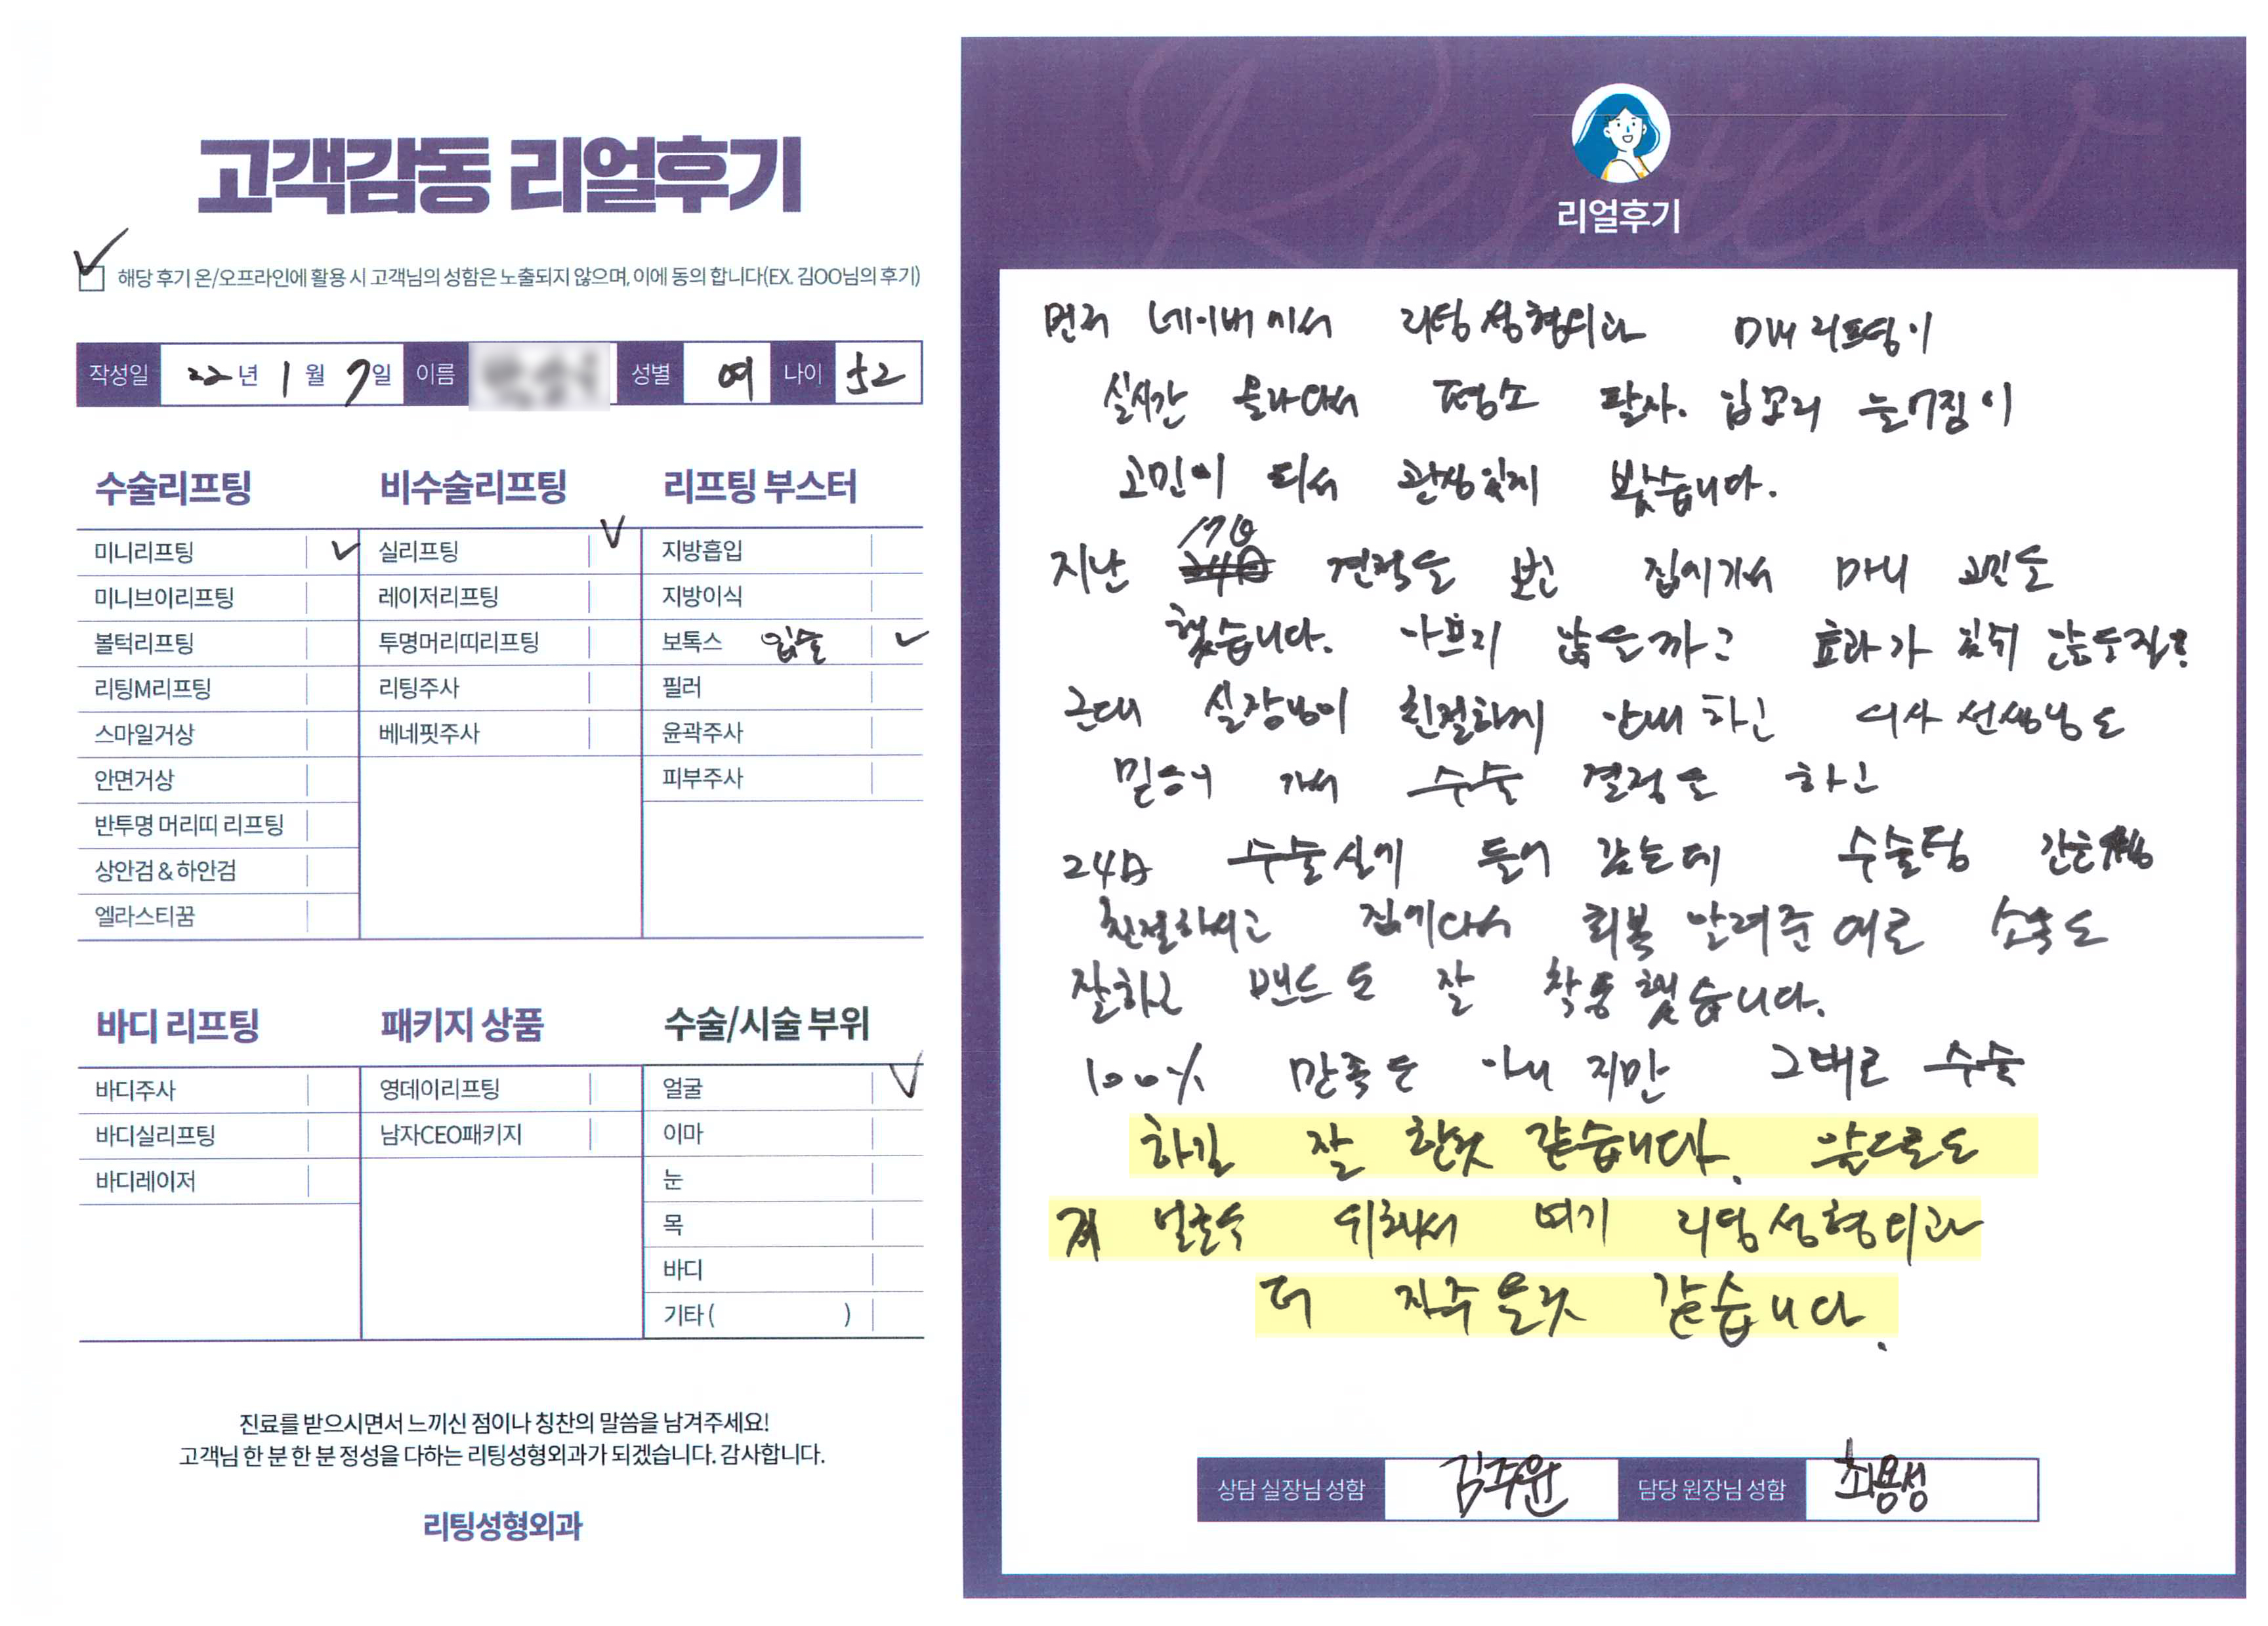 고객감동 리얼후기
해당 후기 온/오프라인에 활용 시 고객님의 성함은 노출되지 않으며, 이에 동의 합니다(EX. 김OO님의 후기)
작성일 22년 1월 7일 이름 성별 여 나이 52
수술리프팅
미니리프팅
미니브이리프팅
볼턱리프팅
리팅M리프팅
스마일거상
안면거상
반투명 머리띠 리프팅
상안검 & 하안검
엘라스티꿈
비수술리프팅
실리프팅
레이저리프팅
투명머리띠리프팅
리팅주사
베네핏주사
리프팅 부스터
지방흡입
지방이식
보톡스 입술
필러
윤곽주사
피부주사
바디 리프팅
바디주사
바디실리프팅
바디레이저
패키지 상품
영데이리프팅
남자CEO패키지
수술/시술 부위
얼굴
이마
눈
목
바디
기타 ( )
진료를 받으시면서 느끼신 점이나 칭찬의 말씀을 남겨주세요!
고객님 한 분 한 분 정성을 다하는 리팅성형외과가 되겠습니다. 감사합니다.
리팅성형외과
Review
리얼후기
먼저 네이버에서 리팅성형외과 미니리프팅이
실시간 올라와서 평소 팔자. 입꼬리 늘어짐이
고민이 되서 관심있게 봤습니다.
지난 17일 견적을 보고 집에가서 마니 고민도
했습니다. 아프지 않을까고 효과가 있쥐 않을질?
근데 실장님이 친절하게 안내 하고 의사 선생님도
믿음이 가서 수술 결정을 하고
24일 수술실에 들어 갔는데 수술팀 간호
친절하시고 집에와서 회복 알려준 데로 소독도
잘하고 밴드도 잘 착용했습니다.
100% 만족은 아니지만 그대로 수술
하길 잘 한것 같습니다. 앞으로도
제 얼굴 위해서 여기 리팅성형외과
더 자주올것 같습니다.
상담 실장님 성함 김주윤 담당 원장님 성함 최용성